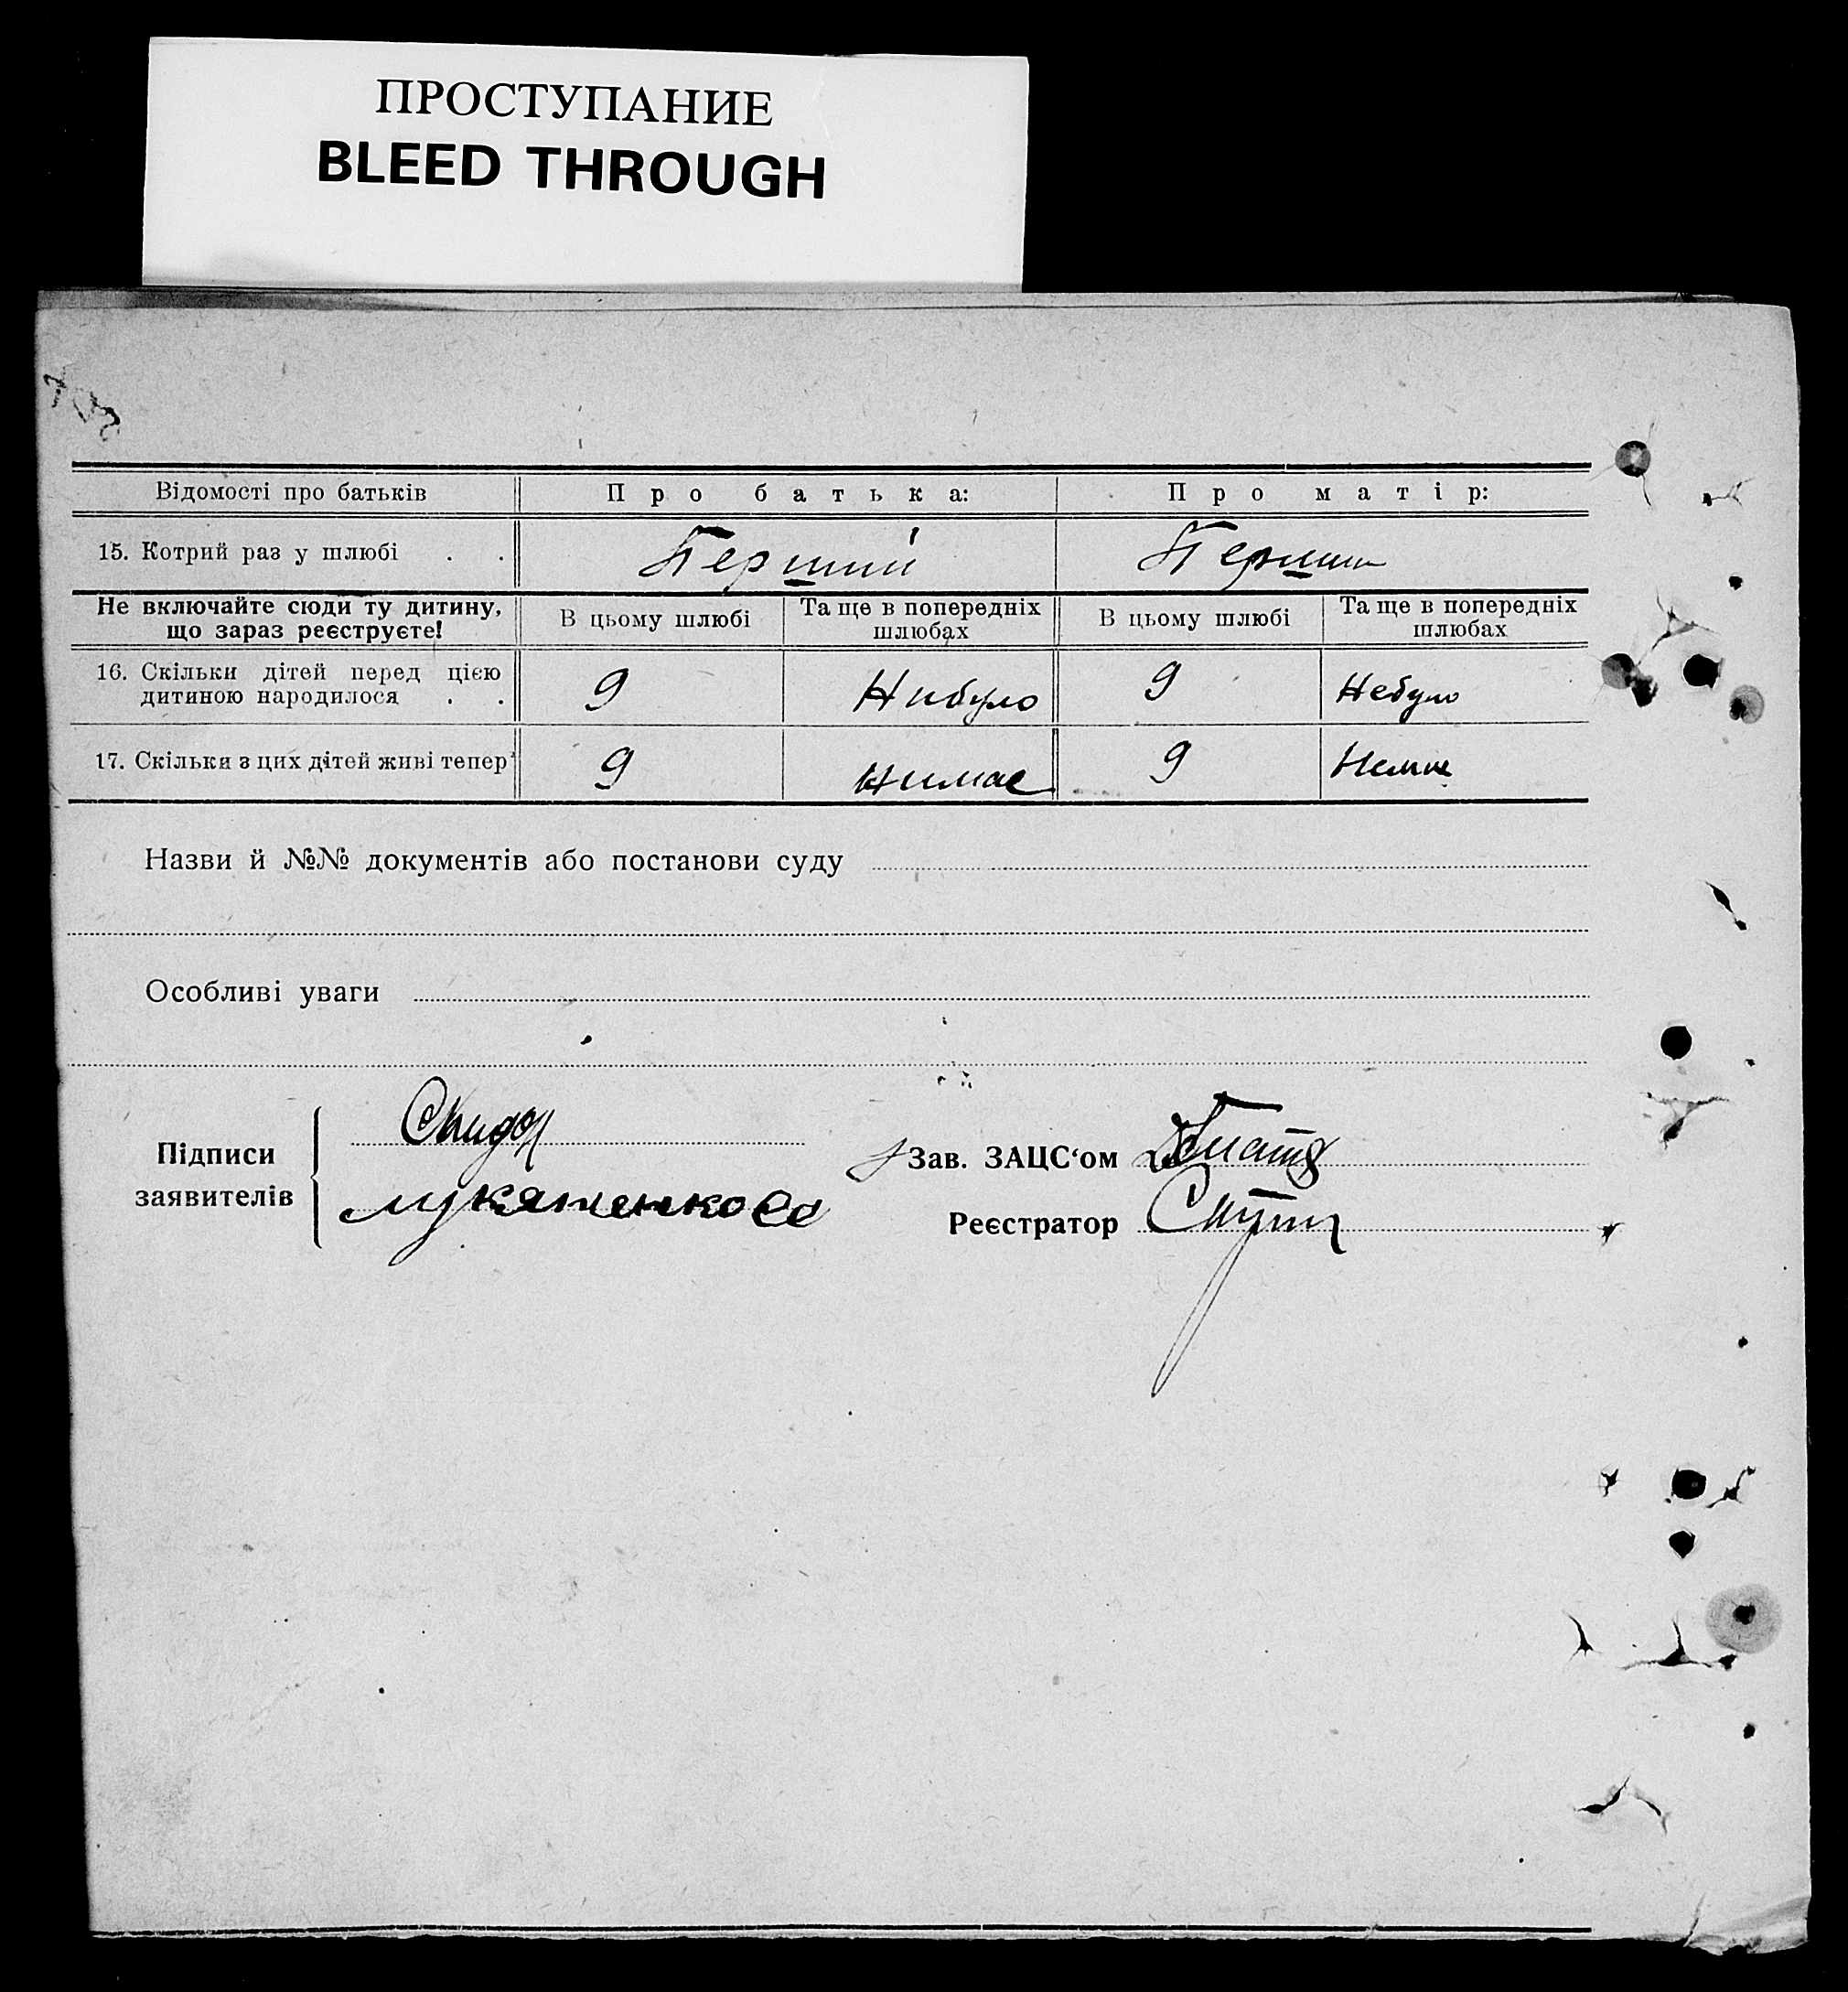 ПРОСТУПАНИЕ
BLEED THROUGH
Відомості про батьків Про батька: Про матір:
15. Котрий раз у шлюбі . . Перший Перший
Не включайте сюди ту дитину, що зараз реєструєте! В цьому шлюбі Та ще в попередніх шлюбах В цьому шлюбі Та ще в попередніх шлюбах
16. Скільки дітей перед цією
дитиною народилося . . 9 Нибуло 9 Небуло
17. Скільки з цих дітей живі тепер 9 Нимає 9 Немає
Назви й №№ документів або постанови суду
Особливі уваги
Підписи заявителів
Зав. ЗАЦС‘ом
Реєстратор